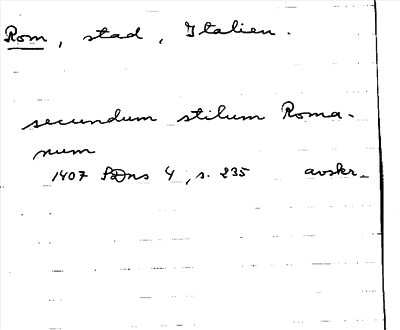 Rom, stad, Italien.
secundum stilum Roma-
num
1407 SDns 4, s. 235 avskr.